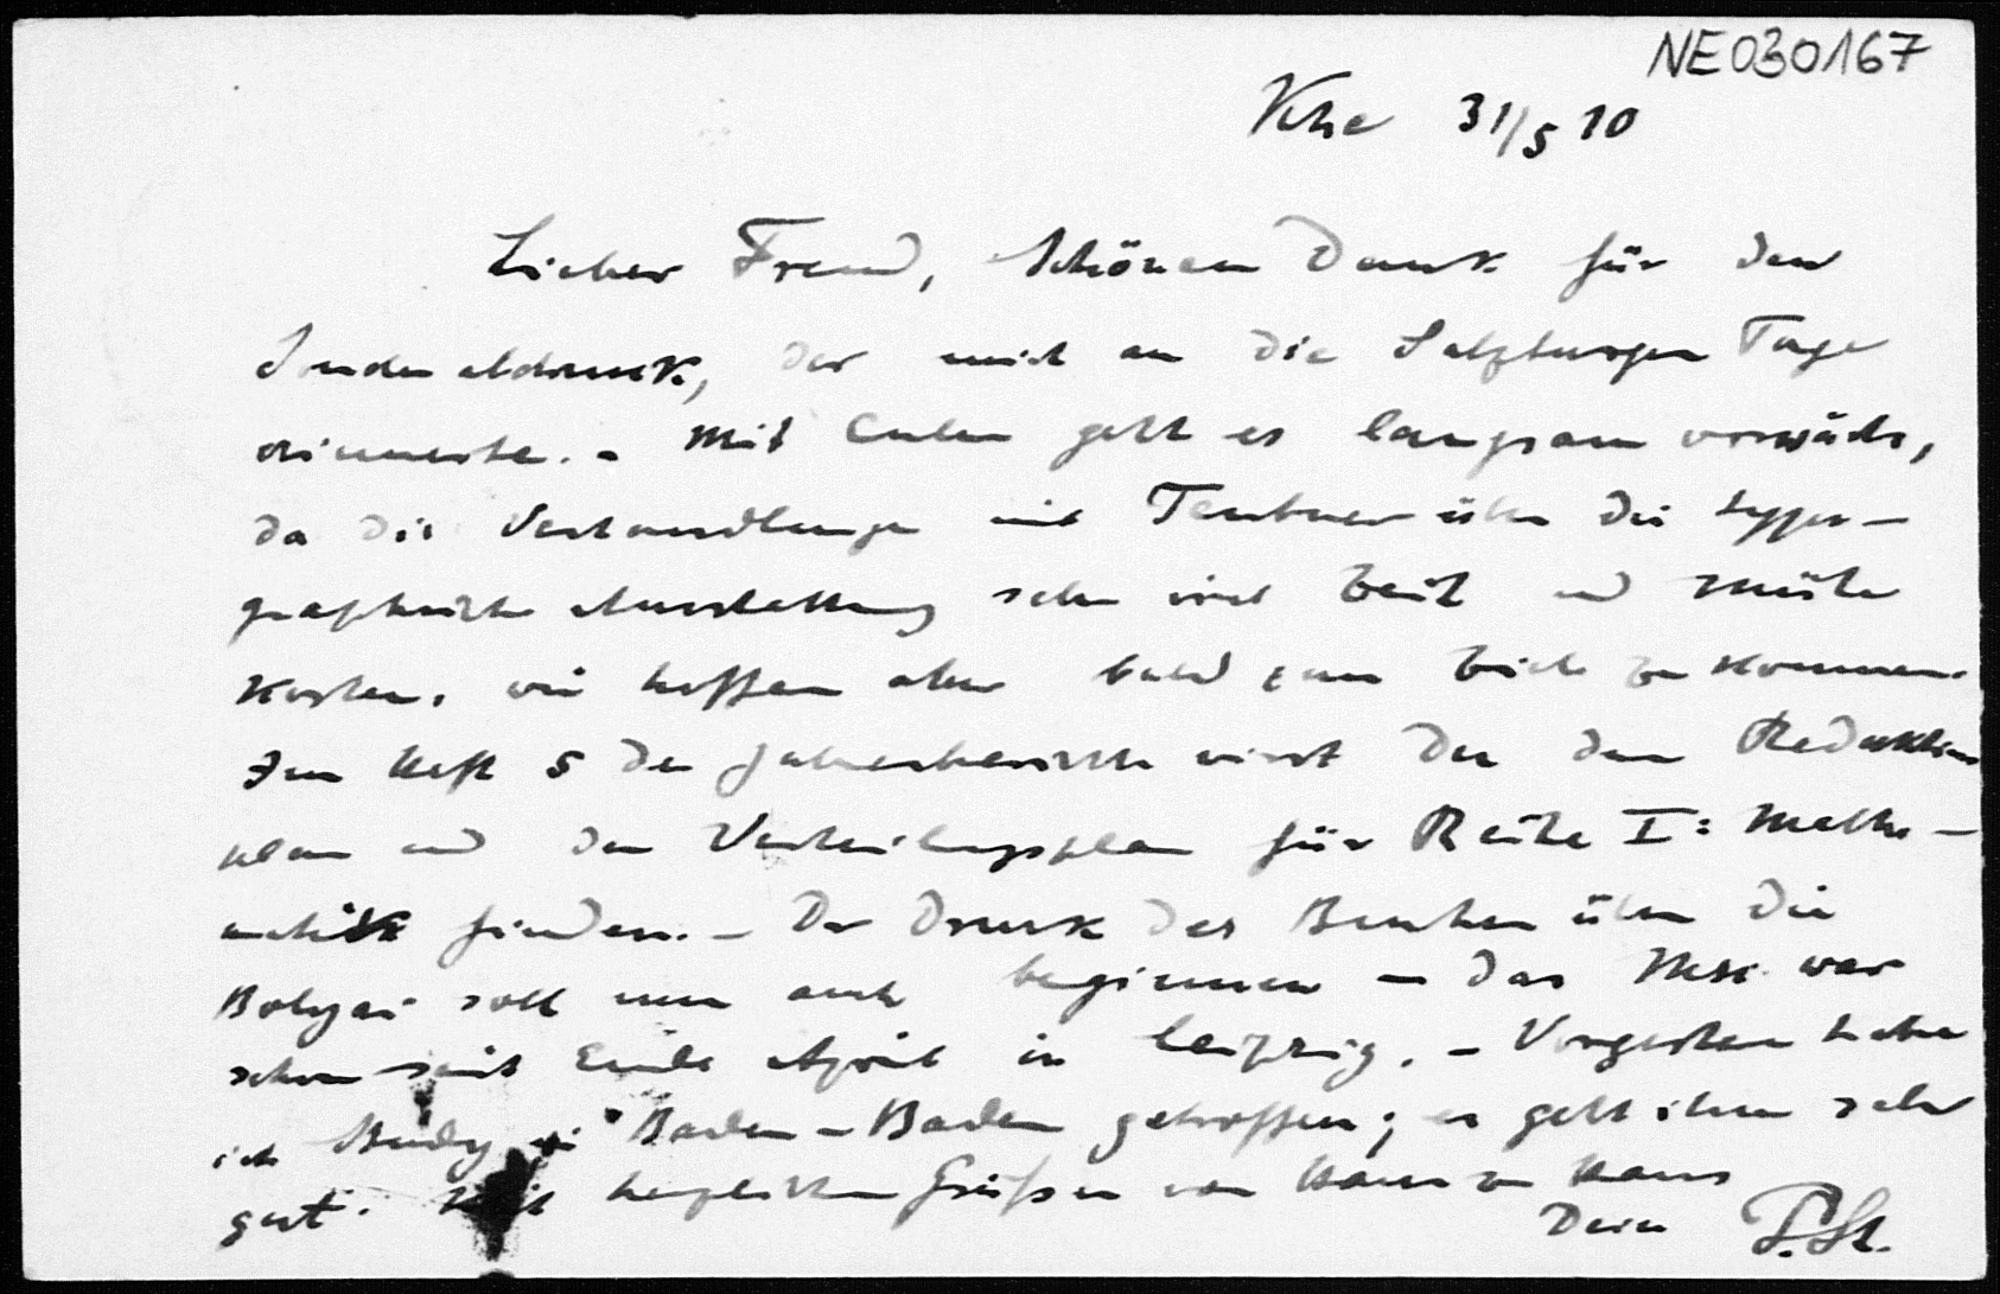 NE030167
Khe 31/5 10
Lieber Freund, Schönen Dank für den
Sonderabdruck, der mich an die Salzburger Tage
erinnerte. - Mit Euler geht es langsam vorwärts,
da die Verhandlungen mit Teubner über die typo-
graphische Ausstattung sehr viel Zeit und Mühe
kosten, wir hoffen aber bald zum Ziele zu kommen.
Im Heft 5 der Jahresberichte wirst Du den Redaktions
plan und den Verteilungsplan für Reihe I: Mathe-
matik finden. - Der Druck des Buches über die
Bolyai soll nun auch beginnen - das Msk. war
schon seit Ende April in Leipzig. - Vorgestern habe
ich Study in Baden-Baden getroffen; es geht ihm sehr
gut. Mit herzlichen Grüßen von Haus zu Haus
Dein P.St.